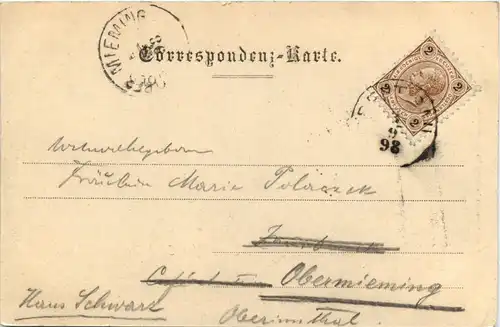 MIEMING
Correspondenz-Karte.
2 2
2 2
9
98
Wohlgeboren
Fräulein Marie Polaczek
Innsbruck
Obermieming
Hans Schwarz
Oberinnthal.